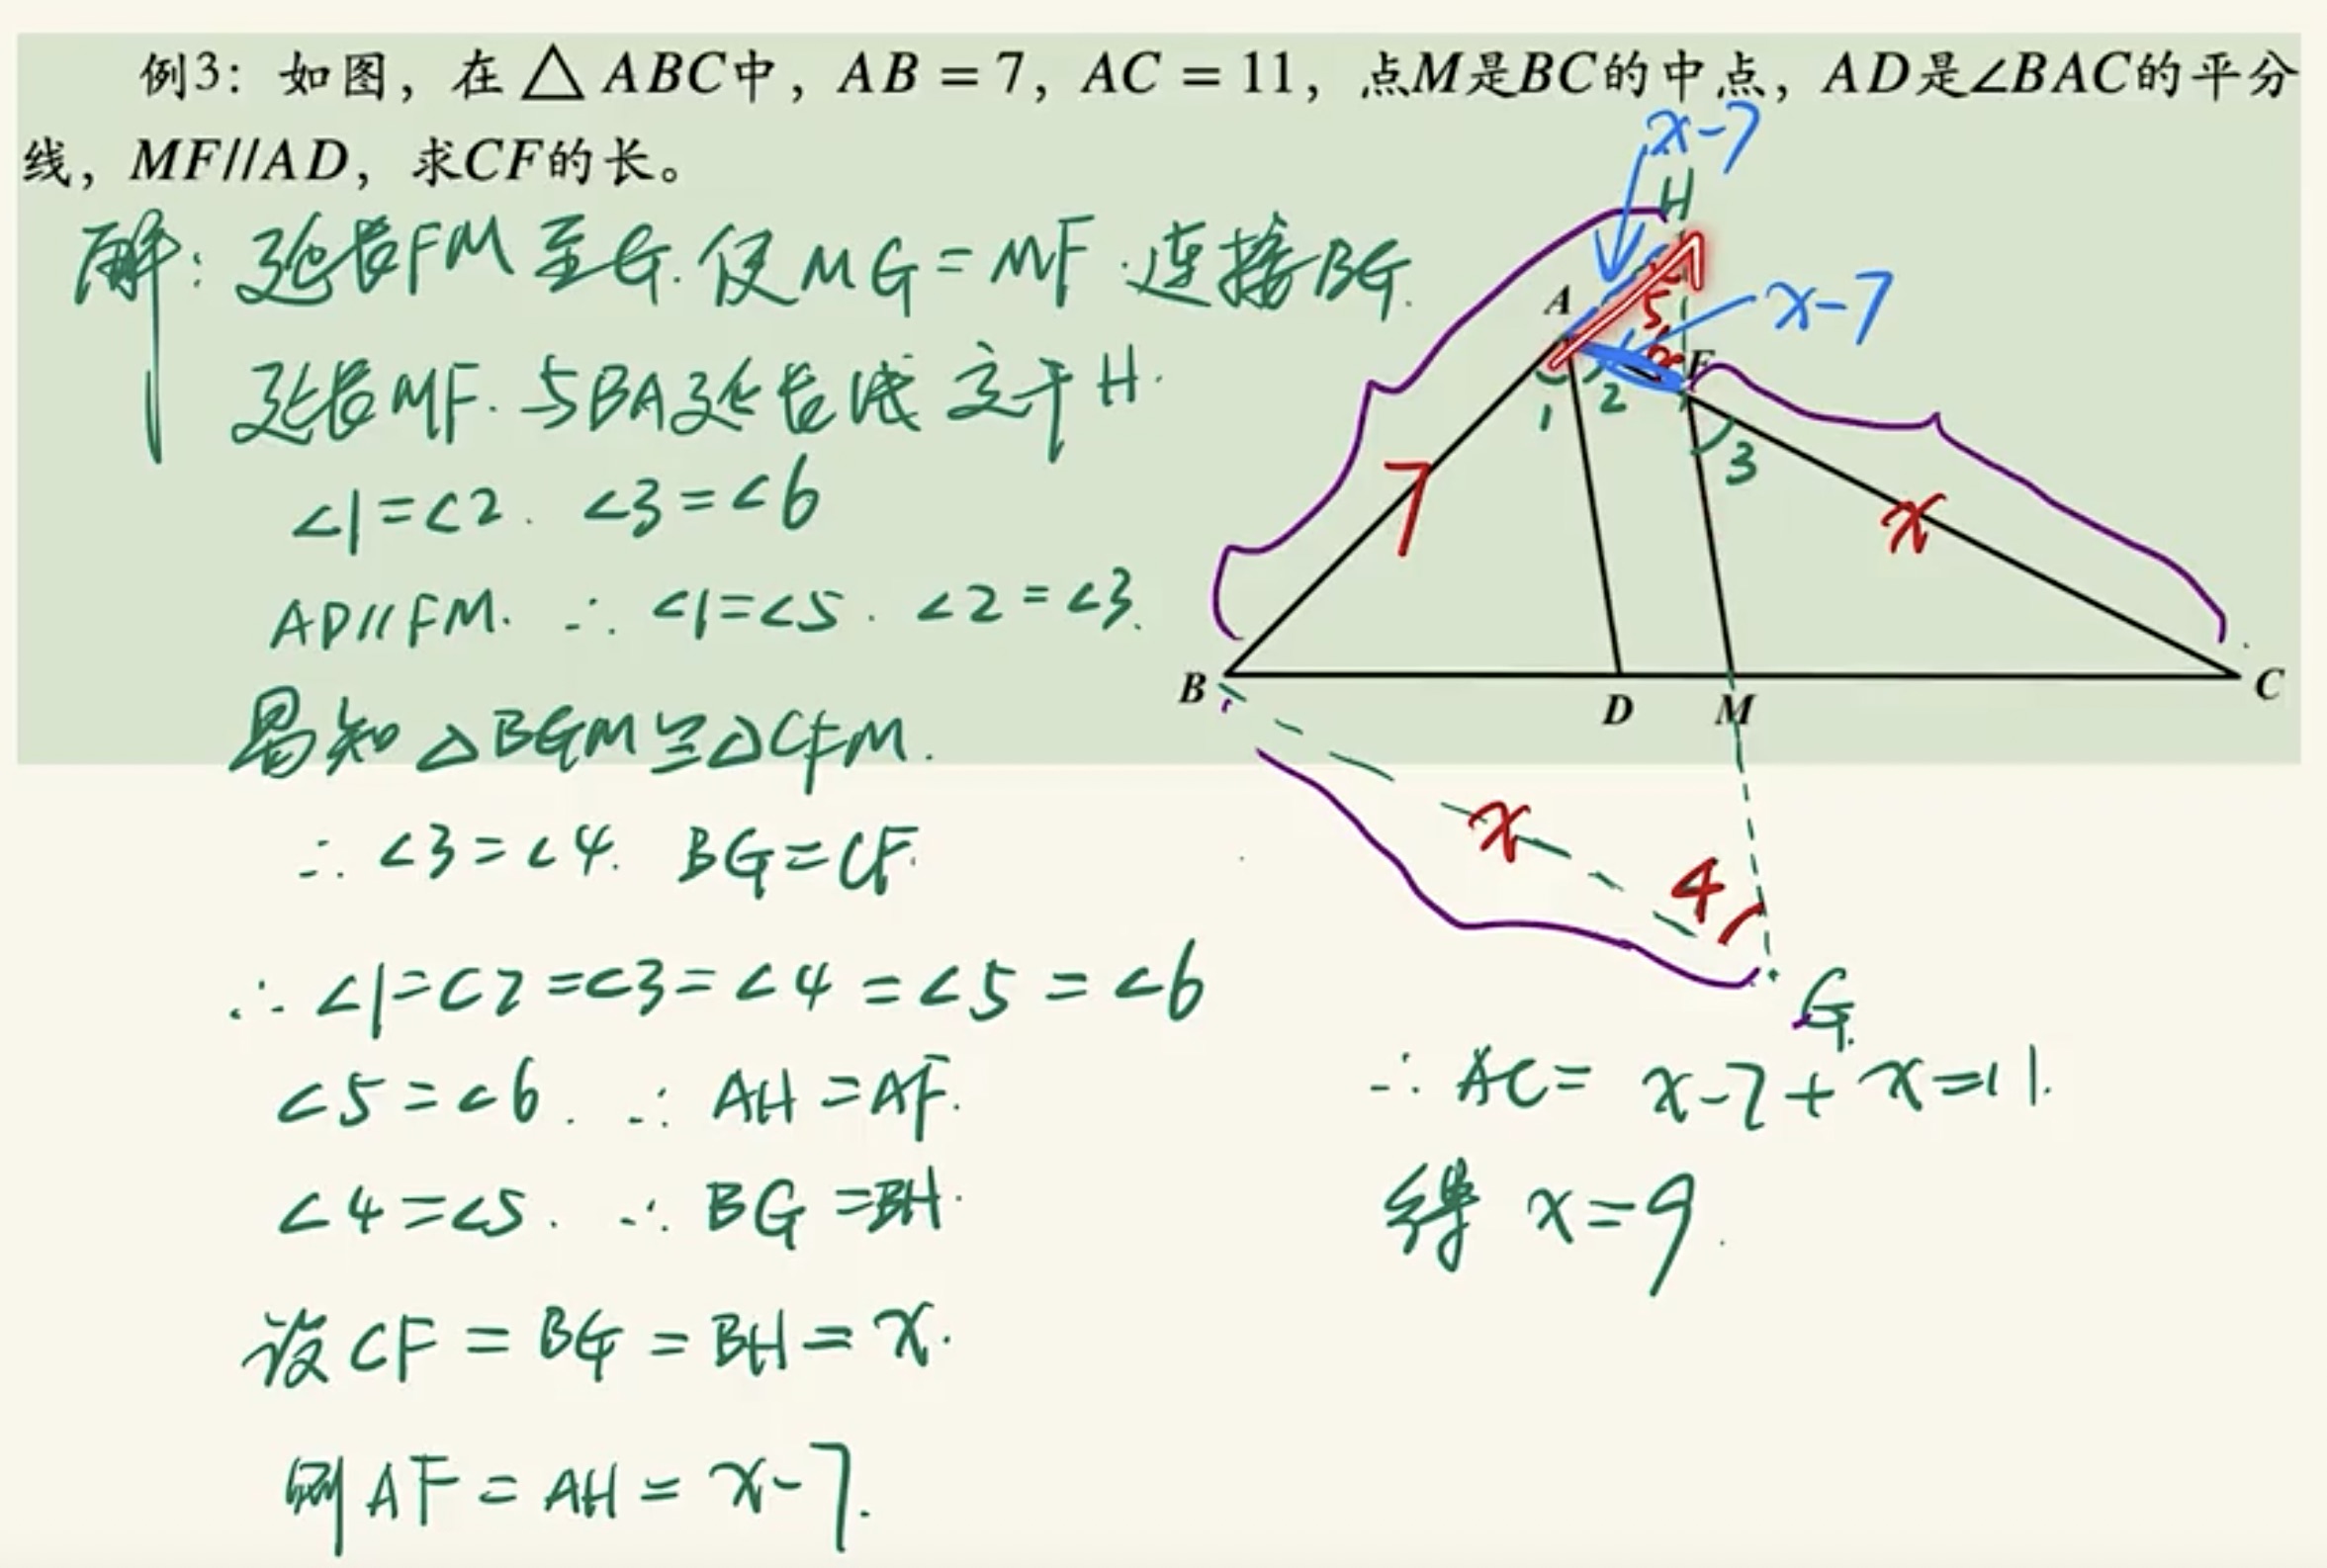 例3：如图，在△ABC中，AB = 7，AC = 11，点M是BC的中点，AD是∠BAC的平分
线，MF//AD，求CF的长。
解：延长FM至G.使MG=MF.连接BG.
延长MF.与BA延长线交于H.
∠1=∠2. ∠3=∠6
AD//FM. ∴ ∠1=∠5. ∠2=∠3.
易知△BGM≌△CFM.
∴ ∠3=∠4. BG=CF.
∴ ∠1=∠2=∠3=∠4=∠5=∠6
∠5=∠6. ∴ AH=AF.
∠4=∠5. ∴ BG=BH.
设CF=BG=BH=x.
则AF=AH=x-7.
x-7
H
A
5
6
x-7
F
1
2
3
7
x
B
D
M
C
x
4
G
∴ AC= x-7+x=11.
得 x=9.